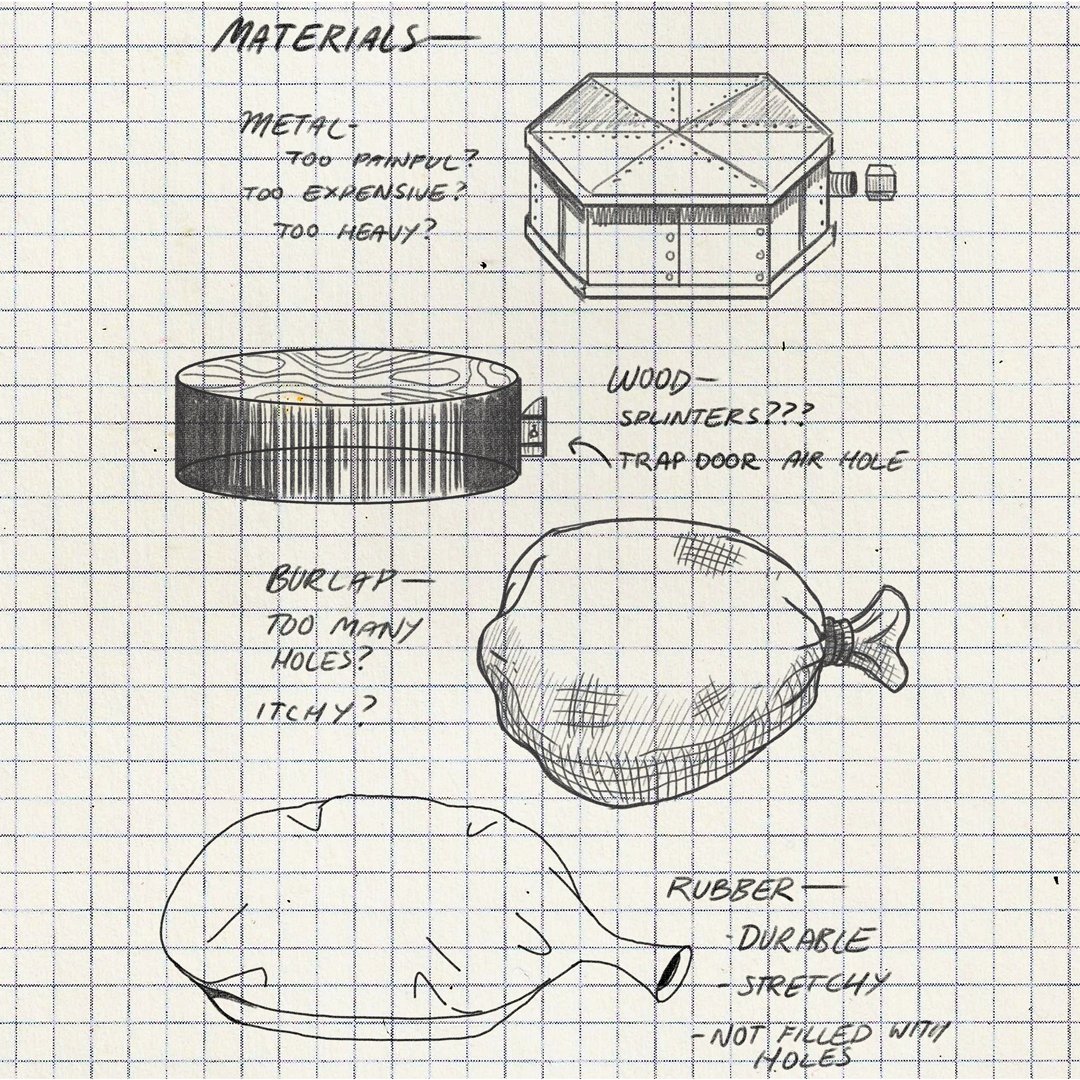 MATERIALS—
METAL-
TOO PAINFUL?
TOO EXPENSIVE?
TOO HEAVY?
WOOD—
SPLINTERS???
TRAP DOOR AIR HOLE
BURLAP—
TOO MANY
HOLES?
ITCHY?
RUBBER—
-DURABLE
-STRETCHY
-NOT FILLED WITH
HOLES